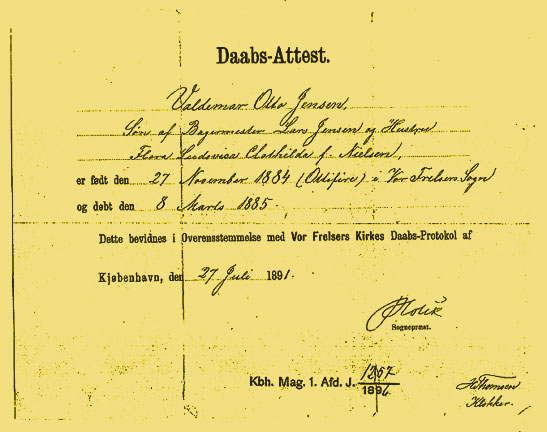 Daabs-Attest.
Valdemar Otto Jensen
Søn af Bagermester Lars Jensen og Hustru
Flora Ludovica Clothilda f. Nielsen,
er født den 27 November 1884 (Ottifire) i Vor Frelsers Sogn
og døbt den 8 Marts 1885.
Dette bevidnes i Overensstemmelse med Vor Frelsers Kirkes Daabs-Protokol af
Kjøbenhavn, den 27 Juli 1891.
Sognepræst.
Kbh. Mag. 1. Afd. J. 1257
1896
HThomsen
Klokker.